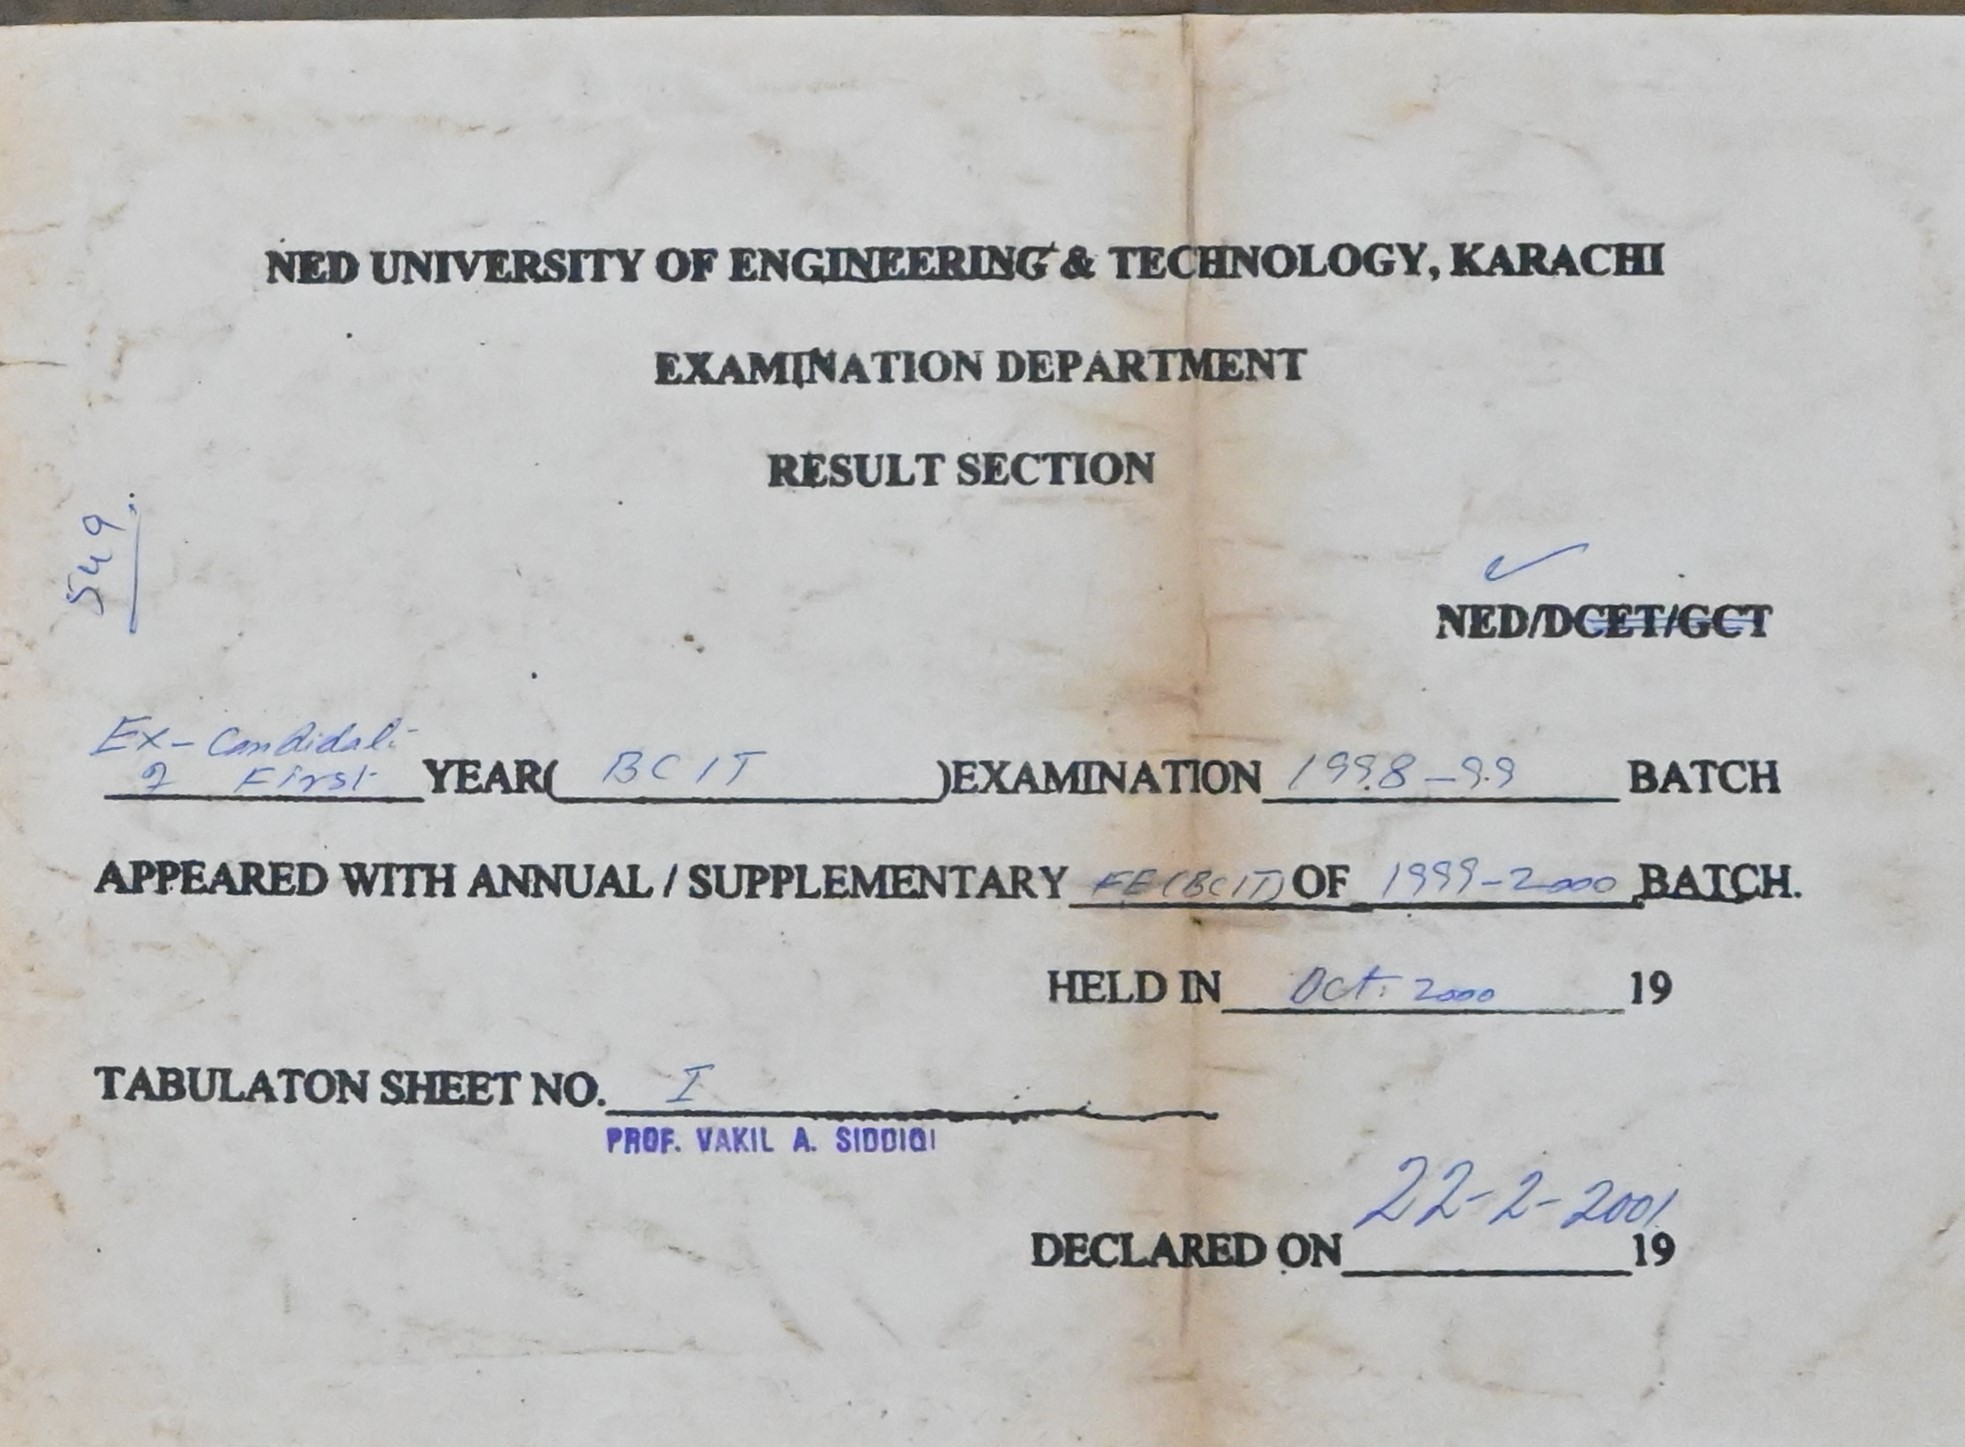 NED UNIVERSITY OF ENGINEERING & TECHNOLOGY, KARACHI
EXAMINATION DEPARTMENT
RESULT SECTION
549
NED/DCET/GCT
Ex-Candidate
of First YEAR( BCIT )EXAMINATION 1998-99 BATCH
APPEARED WITH ANNUAL / SUPPLEMENTARY FE(BCIT) OF 1999-2000 BATCH.
HELD IN Oct. 2000 19
TABULATON SHEET NO. I
PROF. VAKIL A. SIDDIQI
22-2-2001
DECLARED ON 19